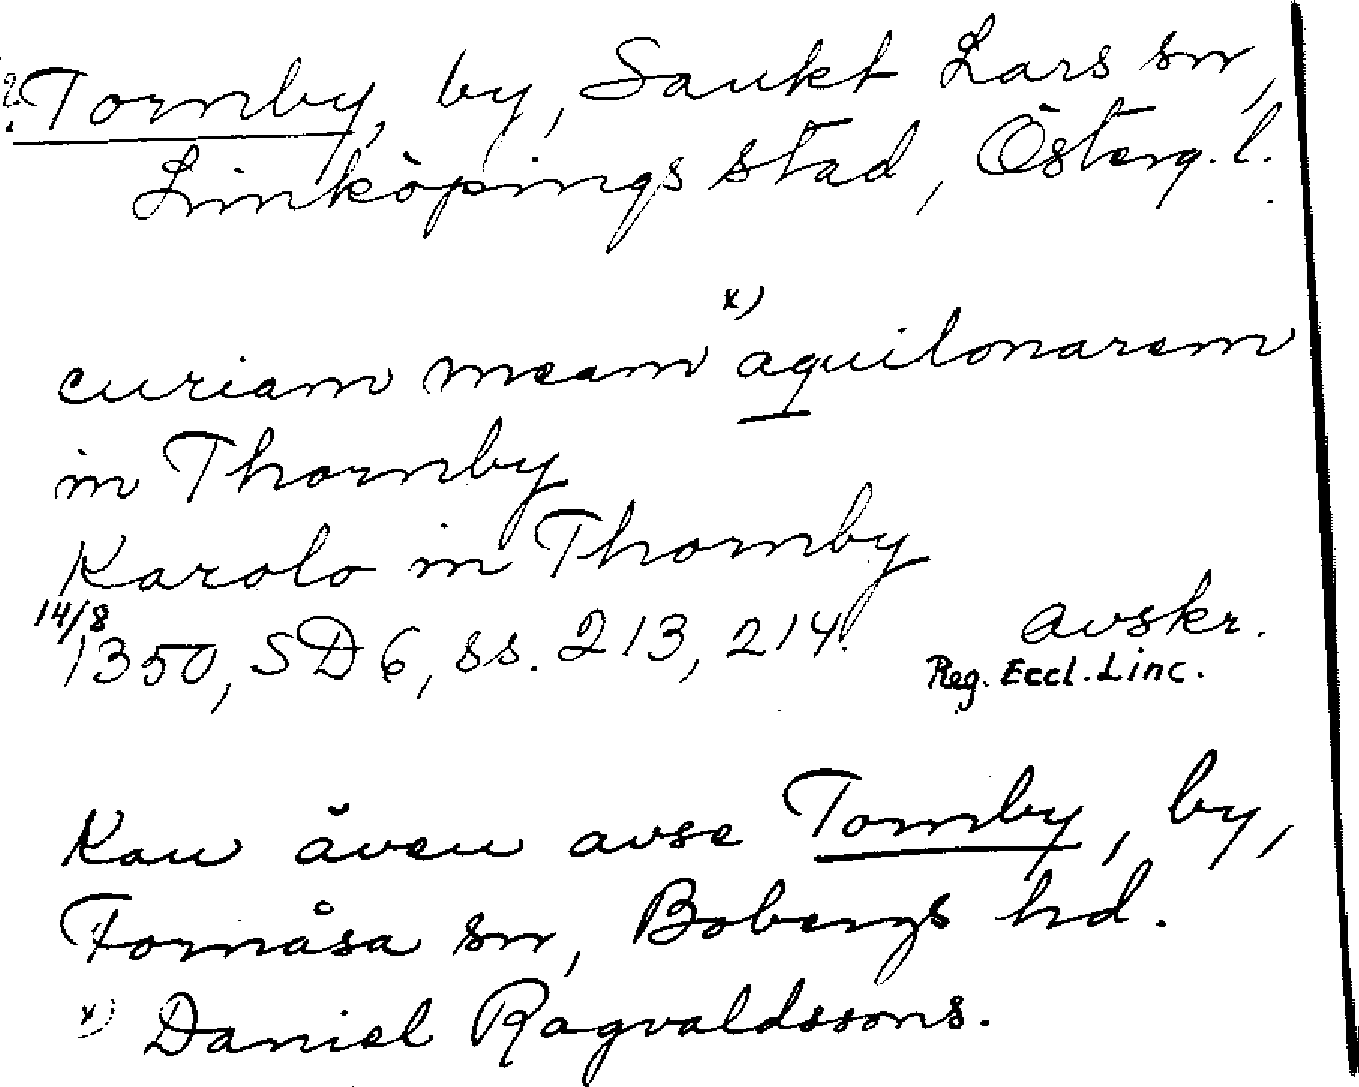 ? Tornby, by, Sankt Lars sn,
Linköpings stad, Österg. l.
x)
curiam meam aquilonarem
in Thornby
Karolo in Thornby
14/8
1350, SD 6, ss. 213, 214. avskr.
Reg. Eccl. Linc.
Kan även avse Tornby, by,
Fornåsa sn, Bobergs hd.
x) Daniel Ragvaldssons.